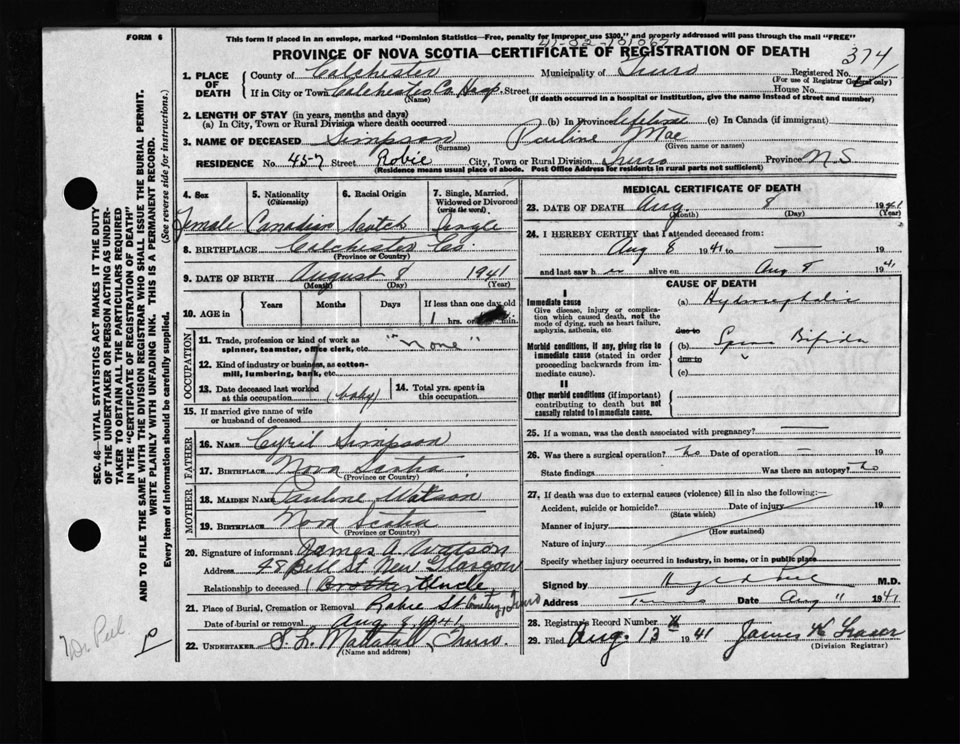 FORM 6
This form if placed in an envelope, marked "Dominion Statistics—Free, penalty for improper use $300," and properly addressed will pass through the mail "FREE"
41-02-101067
PROVINCE OF NOVA SCOTIA—CERTIFICATE OF REGISTRATION OF DEATH
374
1. PLACE OF DEATH
County of Colchester Municipality of Truro Registered No.
(For use of Registrar General only)
If in City or Town Colchester Co. Hosp. Street House No.
(Name) (If death occurred in a hospital or institution, give the name instead of street and number)
2. LENGTH OF STAY (in years, months and days)
(a) In City, Town or Rural Division where death occurred (b) In Province lifetime (c) In Canada (if immigrant)
3. NAME OF DECEASED Simpson Pauline Mae
(Surname) (Given name or names)
RESIDENCE No. 457 Street Robie City, Town or Rural Division Truro Province N.S
(Residence means usual place of abode. Post Office Address for residents in rural parts not sufficient)
4. Sex Female
5. Nationality (Citizenship) Canadian
6. Racial Origin Scotch
7. Single, Married, Widowed or Divorced (write the word) Single
8. BIRTHPLACE Colchester Co.
(Province or Country)
9. DATE OF BIRTH August 8 1941
(Month) (Day) (Year)
10. AGE in Years Months Days If less than one day old
1 hrs. or min.
OCCUPATION
11. Trade, profession or kind of work as spinner, teamster, office clerk, etc. "None"
12. Kind of industry or business, as cotton-mill, lumbering, bank, etc.
13. Date deceased last worked at this occupation (baby)
14. Total yrs. spent in this occupation.
15. If married give name of wife or husband of deceased
FATHER
16. NAME Cyril Simpson
17. BIRTHPLACE Nova Scotia
(Province or Country)
MOTHER
18. MAIDEN NAME Pauline Watson
19. BIRTHPLACE Nova Scotia
(Province or Country)
20. Signature of informant James A. Watson
Address 48 Bell St. New Glasgow
Relationship to deceased Brother Uncle
21. Place of Burial, Cremation or Removal Robie St Cemetery, Truro
Date of burial or removal Aug 9, 1941
22. UNDERTAKER S. L. Mattatall Truro.
(Name and address)
MEDICAL CERTIFICATE OF DEATH
23. DATE OF DEATH Aug. 8 1941
(Month) (Day) (Year)
24. I HEREBY CERTIFY that I attended deceased from:
Aug 8 1941 to 19
and last saw her alive on Aug 8 1941
CAUSE OF DEATH
I
Immediate cause
Give disease, injury or complication which caused death, not the mode of dying, such as heart failure, asphyxia, asthenia, etc.
(a) Hydrocephalis
due to
Morbid conditions, if any, giving rise to immediate cause (stated in order proceeding backwards from immediate cause).
(b) Spina Bifida
due to
(c)
II
Other morbid conditions (if important) contributing to death but not causally related to immediate cause.
25. If a woman, was the death associated with pregnancy?
26. Was there a surgical operation? No Date of operation 19
State findings Was there an autopsy? No
27. If death was due to external causes (violence) fill in also the following:—
Accident, suicide or homicide? Date of injury 19
(State which)
Manner of injury
(How sustained)
Nature of injury
Specify whether injury occurred in Industry, in home, or in public place
Signed by M.D.
Address Truro Date Aug 11 1941
28. Registrar's Record Number
29. Filed Aug. 13 1941 James K Fraser
(Division Registrar)
SEC. 46—VITAL STATISTICS ACT MAKES IT THE DUTY OF THE UNDERTAKER OR PERSON ACTING AS UNDERTAKER TO OBTAIN ALL THE PARTICULARS REQUIRED IN THE "CERTIFICATE OF REGISTRATION OF DEATH" AND TO FILE THE SAME WITH THE DIVISION REGISTRAR WHO SHALL ISSUE THE BURIAL PERMIT.
WRITE PLAINLY WITH UNFADING INK. THIS IS A PERMANENT RECORD.
Every item of information should be carefully supplied. (See reverse side for instructions.)
Dr Peel
P